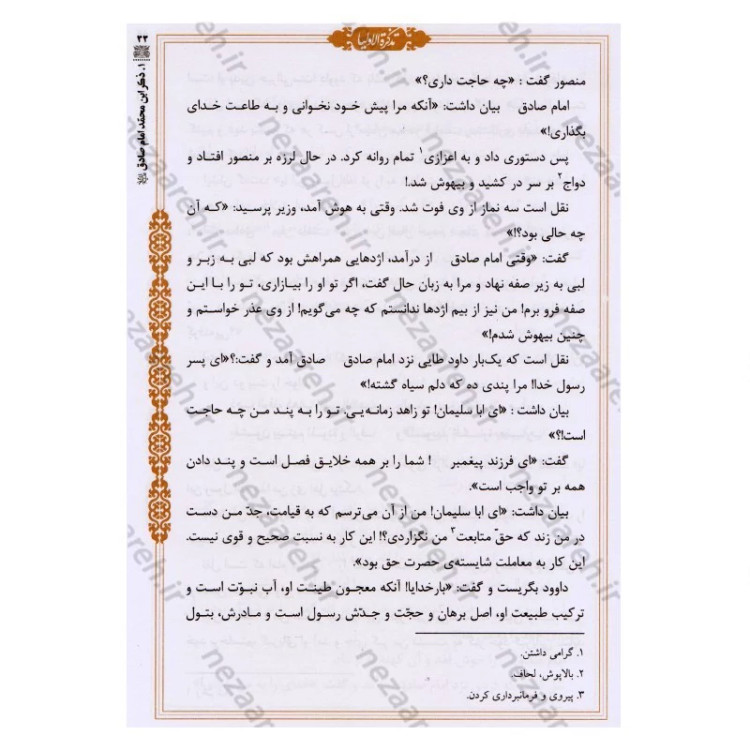 تذکرة الاولیا
۲۲
۱. ذکر ابن محمّد امام صادق
منصور گفت : «چه حاجت داری؟»
امام صادق بیان داشت: «آنکه مرا پیش خود نخوانی و به طاعت خدای
بگذاری!»
پس دستوری داد و به اعزازی۱ تمام روانه کرد. در حال لرزه بر منصور افتاد و
دواج۲ بر سر در کشید و بیهوش شد!
نقل است سه نماز از وی فوت شد. وقتی به هوش آمد، وزیر پرسید: «که آن
چه حالی بود؟!»
گفت: «وقتی امام صادق از درآمد، اژدهایی همراهش بود که لبی به زبر و
لبی به زیر صفه نهاد و مرا به زبان حال گفت، اگر تو او را بیازاری، تو را با این
صفه فرو برم! من نیز از بیم اژدها ندانستم که چه می‌گویم! از وی عذر خواستم و
چنین بیهوش شدم!»
نقل است که یک‌بار داود طایی نزد امام صادق صادق آمد و گفت:؟«ای پسر
رسول خدا! مرا پندی ده که دلم سیاه گشته!»
بیان داشت : «ای ابا سلیمان! تو زاهد زمانه‌یی. تو را به پند من چه حاجت
است!؟»
گفت: «ای فرزند پیغمبر ! شما را بر همه خلایق فصل است و پند دادن
همه بر تو واجب است».
بیان داشت: «ای ابا سلیمان! من از آن می‌ترسم که به قیامت، جدّ من دست
در من زند که حقّ متابعت۳ من نگزاردی؟! این کار به نسبت صحیح و قوی نیست.
این کار به معاملت شایسته‌ی حضرت حق بود».
داوود بگریست و گفت: «بارخدایا! آنکه معجون طینت او، آب نبوّت است و
ترکیب طبیعت او، اصل برهان و حجّت و جدّش رسول است و مادرش، بتول
۱. گرامی داشتن.
۲. بالاپوش، لحاف.
۳. پیروی و فرمانبرداری کردن.
nezaareh.ir